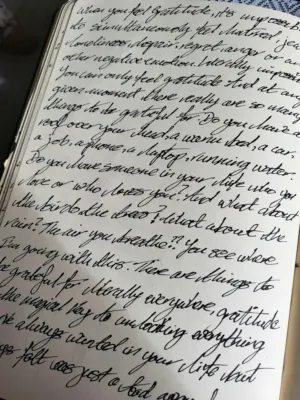 When you feel gratitude, it's impossib
to simultaneously feel hatred, jea
loneliness, despair, regret, anger or an
other negative emotion. Literally imposs
You can only feel gratitude. And at any
given moment there really are so many
things to be grateful for. Do you have a
roof over your head, a warm bed, a car,
a job, a phone, a laptop, running water.
Do you have someone in your life who you
love or who loves you? And what about
the birds, the trees? What about the
rain? The air you breathe?? You see where
I'm going with this. There are things to
be grateful for literally everywhere, gratitude
the magical key to unlocking everything
've always wanted in your life but
ays felt was just a